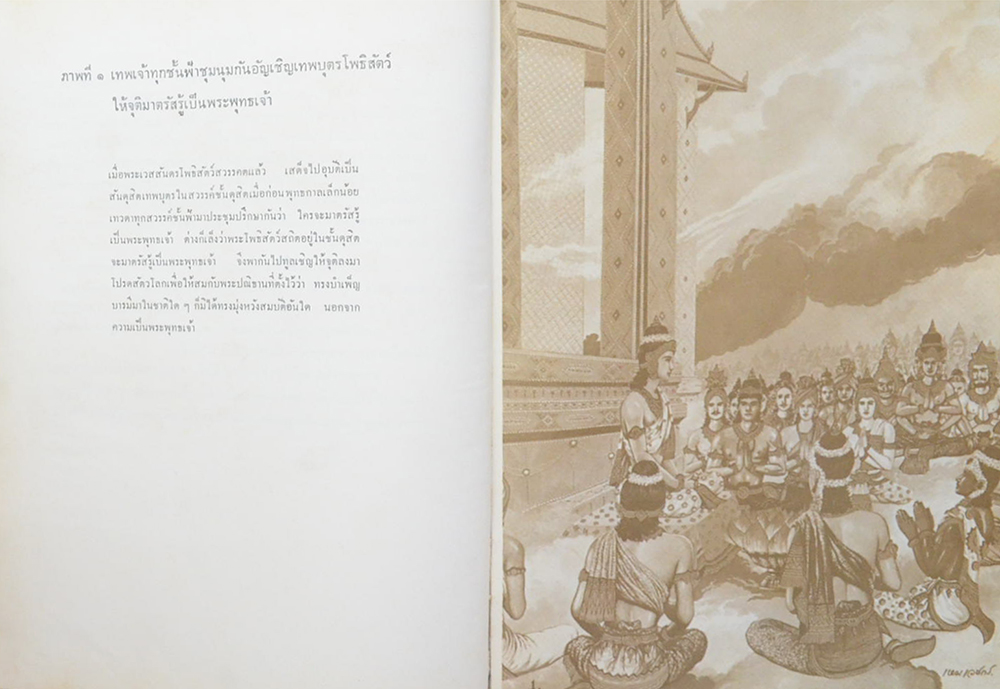 ภาพที่ ๑ เทพเจ้าทุกชั้นฟ้าชุมนุมกันอัญเชิญเทพบุตรโพธิสัตว์
ให้จุติมาตรัสรู้เป็นพระพุทธเจ้า
เมื่อพระเวสสันดรโพธิสัตว์สวรรคตแล้ว เสด็จไปอุบัติเป็น
สันดุสิตเทพบุตรในสวรรค์ชั้นดุสิตเมื่อก่อนพุทธกาลเล็กน้อย
เทวดาทุกสวรรค์ชั้นฟ้ามาประชุมปรึกษากันว่า ใครจะมาตรัสรู้
เป็นพระพุทธเจ้า ต่างก็เล็งว่าพระโพธิสัตว์สถิตอยู่ในชั้นดุสิต
จะมาตรัสรู้เป็นพระพุทธเจ้า จึงพากันไปทูลเชิญให้จุติลงมา
โปรดสัตวโลกเพื่อให้สมกับพระปณิธานที่ตั้งไว้ว่า ทรงบำเพ็ญ
บารมีมาในชาติใด ๆ ก็มิได้ทรงมุ่งหวังสมบัติอันใด นอกจาก
ความเป็นพระพุทธเจ้า